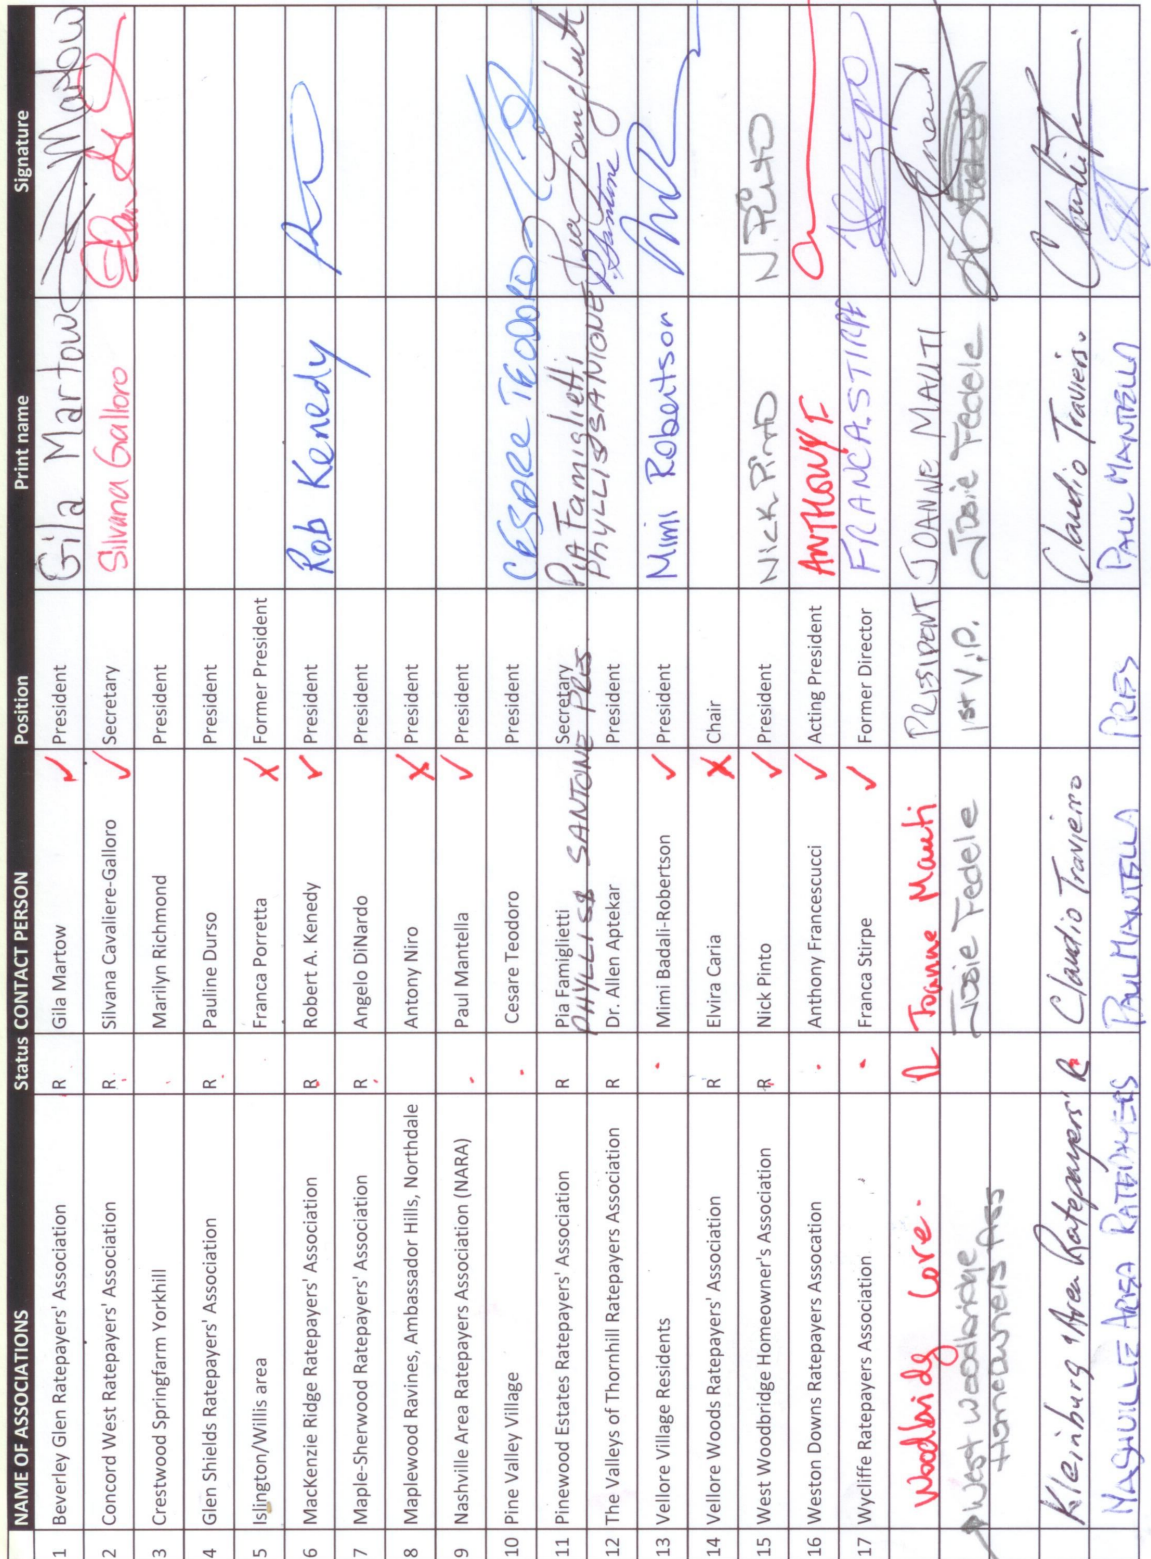 NAME OF ASSOCIATIONS Status CONTACT PERSON Position Print name Signature
1 Beverley Glen Ratepayers' Association R Gila Martow ✓ President Gila Martow Martow
2 Concord West Ratepayers' Association R. Silvana Cavaliere-Galloro ✓ Secretary Silvana Galloro
3 Crestwood Springfarm Yorkhill Marilyn Richmond President
4 Glen Shields Ratepayers' Association R. Pauline Durso President
5 Islington/Willis area Franca Porretta X Former President
6 MacKenzie Ridge Ratepayers' Association R Robert A. Kenedy ✓ President Rob Kenedy
7 Maple-Sherwood Ratepayers' Association R Angelo DiNardo President
8 Maplewood Ravines, Ambassador Hills, Northdale Antony Niro X President
9 Nashville Area Ratepayers Association (NARA) Paul Mantella ✓ President
10 Pine Valley Village Cesare Teodoro President CESARE TEODORO
11 Pinewood Estates Ratepayers' Association R Pia Famiglietti Secretary Pia Famiglietti Pia Famiglietti
PHYLLIS SANTONE PRES. PHYLLIS SANTONE P. Santone
12 The Valleys of Thornhill Ratepayers Association R Dr. Allen Aptekar President
13 Vellore Village Residents Mimi Badali-Robertson ✓ President Mimi Robertson
14 Vellore Woods Ratepayers' Association R Elvira Caria X Chair
15 West Woodbridge Homeowner's Association R Nick Pinto ✓ President Nick Pinto N. Pinto
16 Weston Downs Ratepayers Assocation Anthony Francescucci ✓ Acting President ANTHONY F
17 Wycliffe Ratepayers Association Franca Stirpe ✓ Former Director FRANCA STIRPE
Woodbridg Core. R Joanne Mauti PRESIDENT JOANNE MAUTI
West Woodbridge Josie Fedele 1st V.P. Josie Fedele
Homeowners Ass
Kleinburg & Area Ratepayers' R Claudio Travieiro Claudio Travieiro
NASHVILLE AREA RATEPAYERS PAUL MANTELLA PRES PAUL MANTELLA